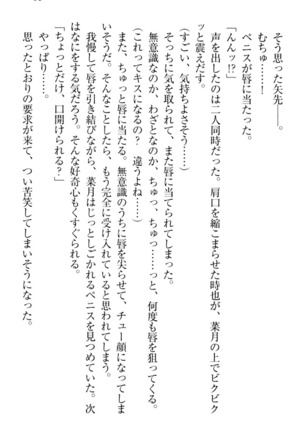 そう思った矢先――。
むちゅ……！
ペニスが唇に当たった。
「んんッ!?」
声を出したのは二人同時だった。肩口を縮こまらせた時也が、菜月の上でビクビク
ッと震えだす。
(すごい、気持ちよさそう……)
そっちに気を取られて、また唇に当てられてしまった。
無意識なのか、わざとなのか、ちゅっ、ちゅっ……っと、何度も唇を狙ってくる。
(これってキスになるの？　違うよね……)
また、ちゅっと唇に当たる。無意識のうちに唇を尖らせて、チュー顔になってしま
いそうだ。そんなことしたら、もう完全に受け入れていると思われてしまう。
我慢して唇を引き結びながら、菜月はじっとしごかれるペニスを見つめていた。次
はなにをする気だろう。そんな好奇心もくすぐられる。
「ちょっとだけ、口開けられる？」
やっぱり……。
思ったとおりの要求が来て、つい苦笑してしまいそうになった。